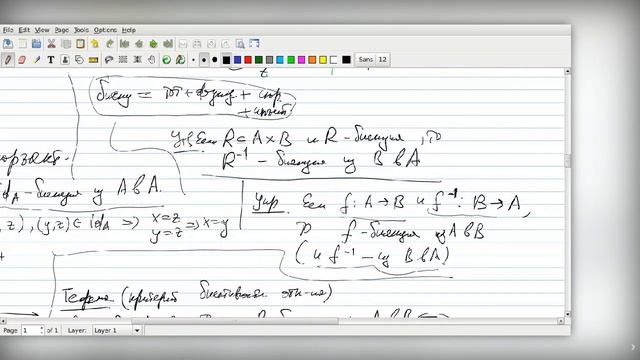 File Edit View Page Tools Options Help
Sans 12
биекц = тот + функц + сюр. + инъект
Утв Если R ⊂ A × B и R - биекция, то
R⁻¹ - биекция из B в A
id_A - биекция из A в A.
z), (y,z) ∈ id_A ⇒ x=z y=z ⇒ x=y
Упр. Если f: A → B и f⁻¹: B → A,
то f - биекция из A в B
(и f⁻¹ - из B в A)
Теорема (критерий биективности отн-ия)
Page 1 of 1 Layer: Layer 1